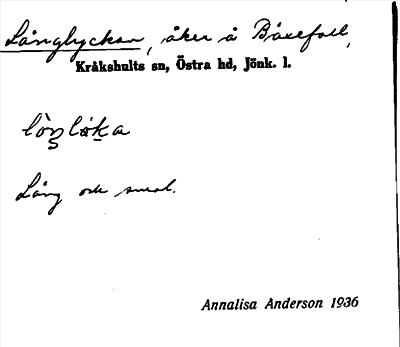 Långlyckan, åker å Båxefall,
Kråkshults sn, Östra hd, Jönk. l.
Lång och smal.
Annalisa Anderson 1936